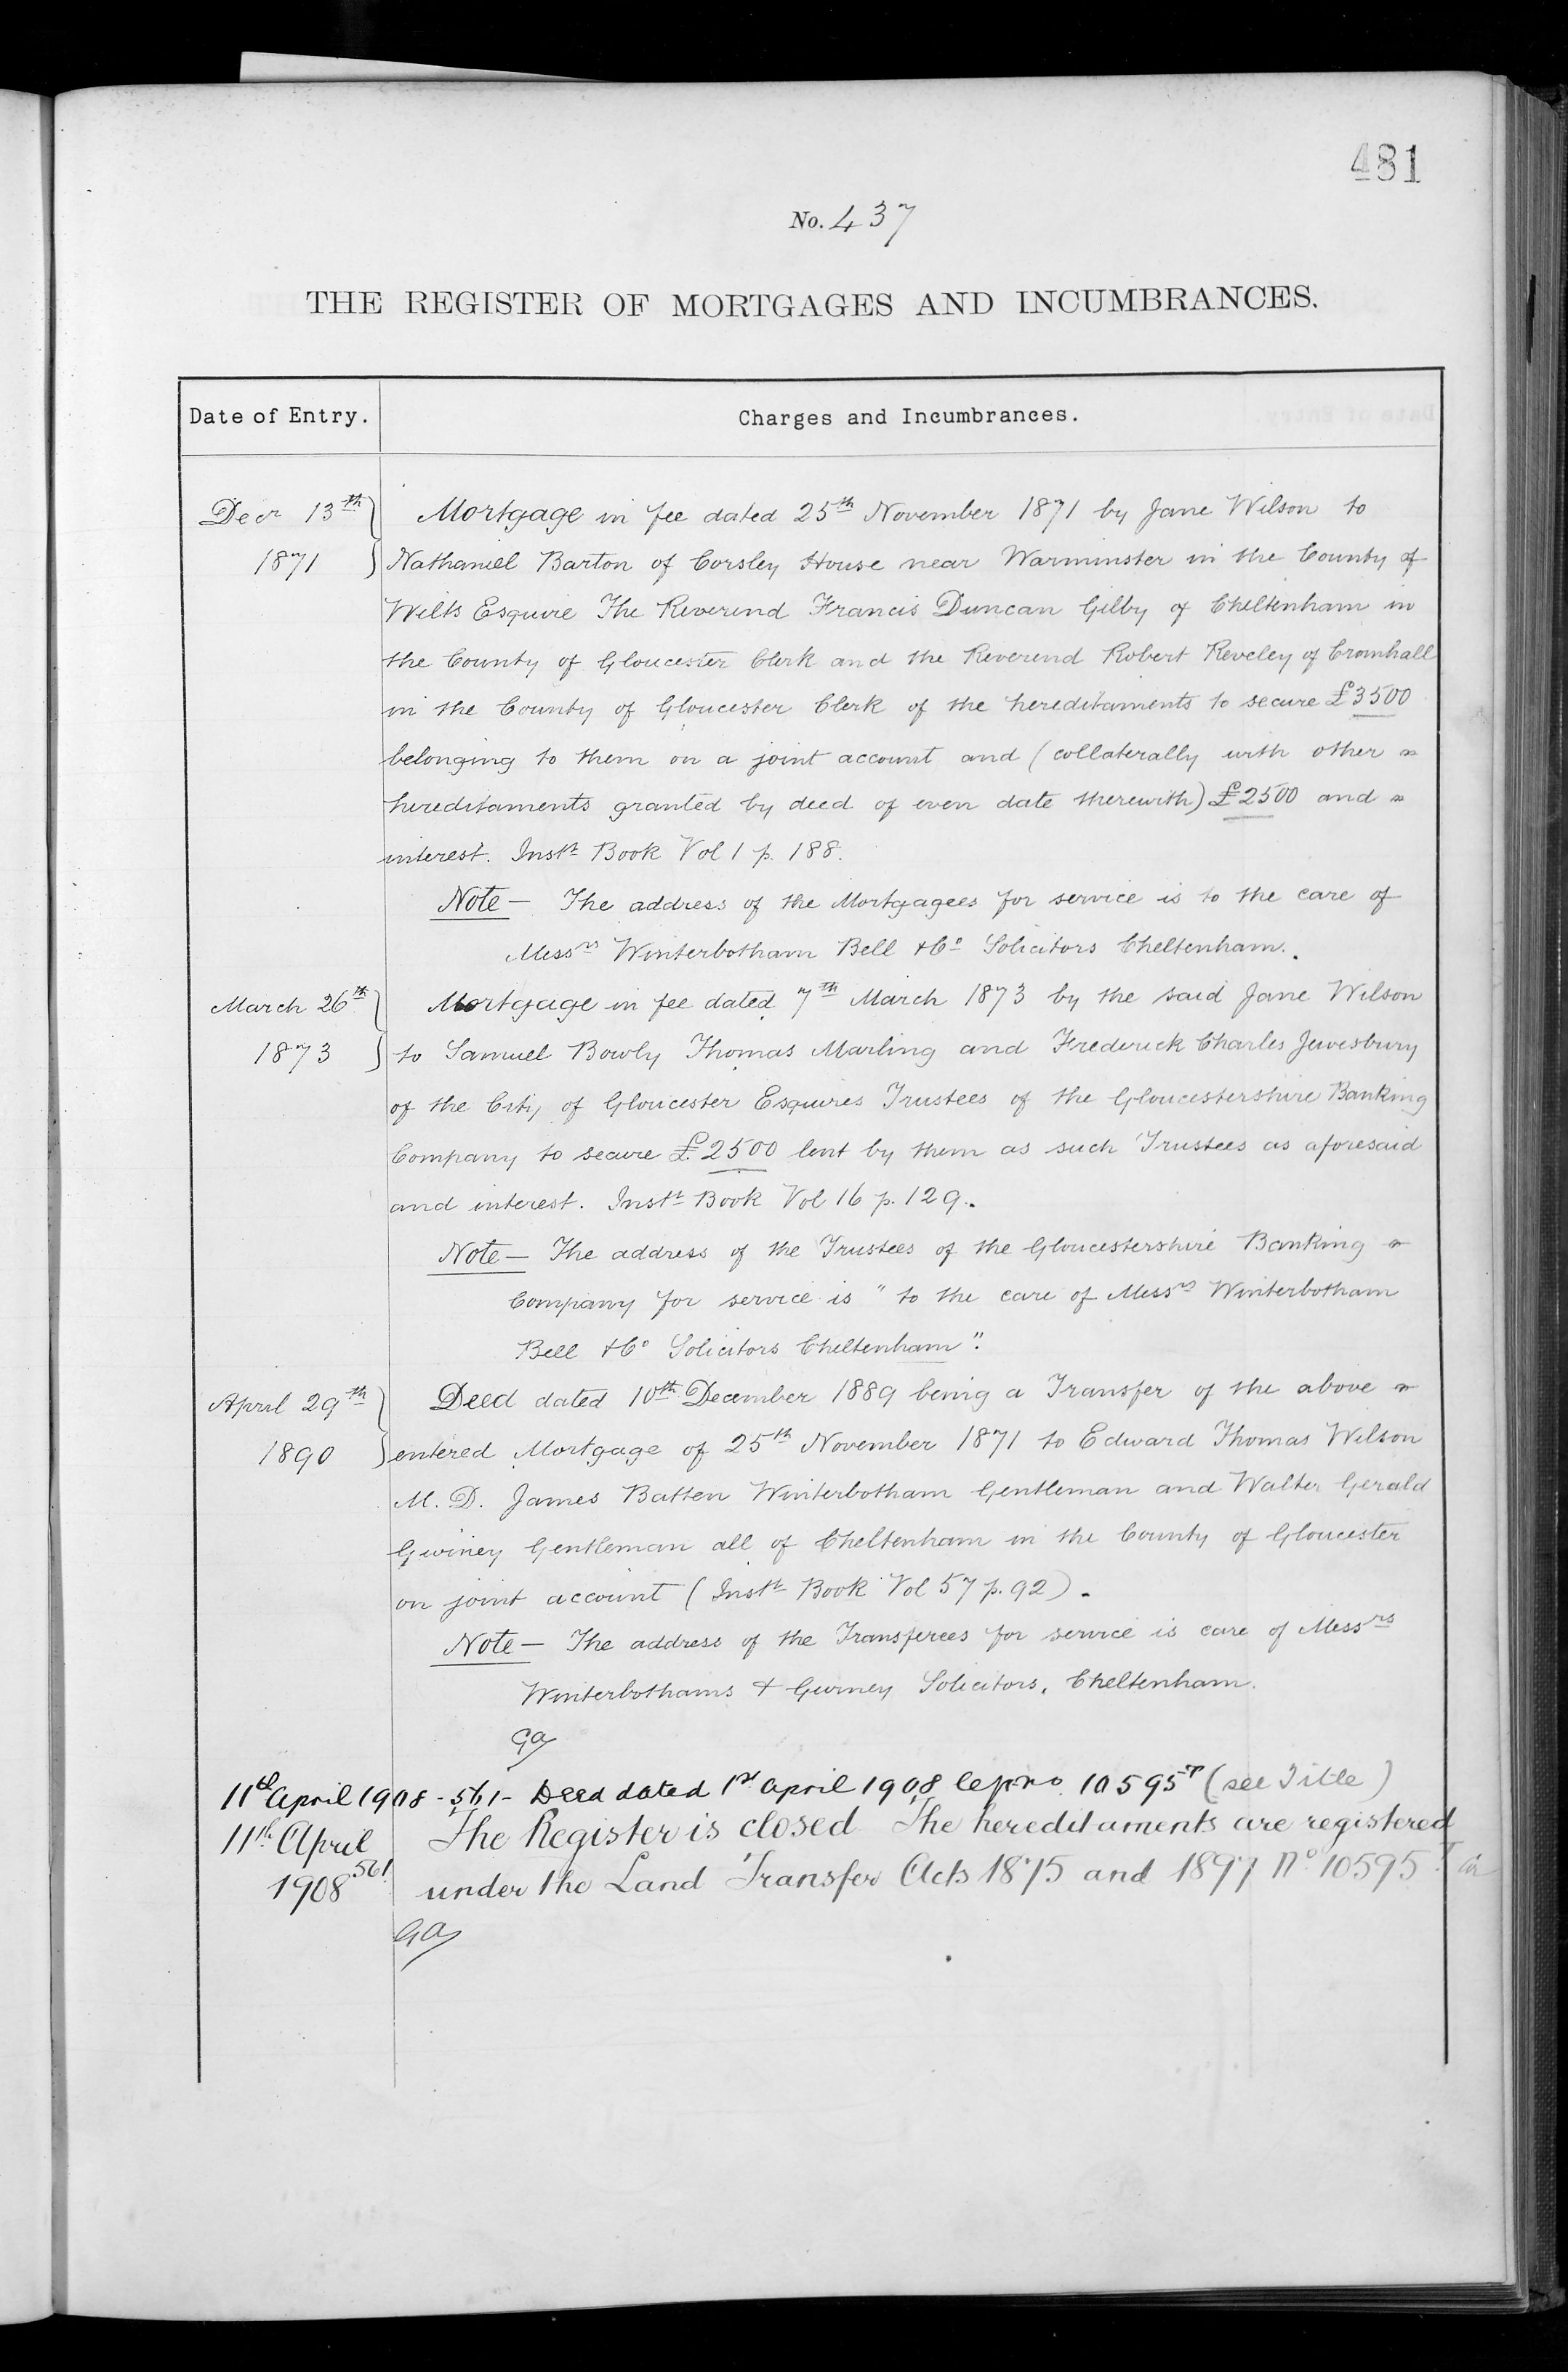 481
No. 437
THE REGISTER OF MORTGAGES AND INCUMBRANCES.
Date of Entry. Charges and Incumbrances.
Decr 13th Mortgage in fee dated 25th November 1871 by Jane Wilson to
1871 Nathaniel Barton of Corsley House near Warminster in the County of
Wilts Esquire The Reverend Francis Duncan Gilby of Cheltenham in
the County of Gloucester Clerk and the Reverend Robert Reveley of Cromhall
in the County of Gloucester Clerk of the hereditaments to secure £3500
belonging to them on a joint account and (collaterally with other
hereditaments granted by deed of even date therewith) £2500 and
interest. Instt Book Vol 1 p. 188.
Note — The address of the Mortgagees for service is to the care of
Messrs Winterbotham Bell & Co Solicitors Cheltenham.
March 26th Mortgage in fee dated 7th March 1873 by the said Jane Wilson
1873 to Samuel Bowly Thomas Marling and Frederick Charles Jewesbury
of the City of Gloucester Esquires Trustees of the Gloucestershire Banking
Company to secure £2500 lent by them as such Trustees as aforesaid
and interest. Instt Book Vol 16 p. 129.
Note — The address of the Trustees of the Gloucestershire Banking
Company for service is "to the care of Messrs Winterbotham
Bell & Co Solicitors Cheltenham".
April 29th Deed dated 10th December 1889 being a Transfer of the above
1890 entered Mortgage of 25th November 1871 to Edward Thomas Wilson
M. D. James Batten Winterbotham Gentleman and Walter Gerald
Gentleman all of Cheltenham in the County of Gloucester
on joint account (Instt Book Vol 57 p. 92).
Note — The address of the Transferees for service is care of Messrs
Winterbothams & Gurney Solicitors, Cheltenham.
GA
11th April 1908 - 561 - Deed dated 1st April 1908 10595 (see Title)
11th April The Register is closed The hereditaments are registered
1908 561 under the Land Transfer Acts 1875 and 1897 No 10595
GA